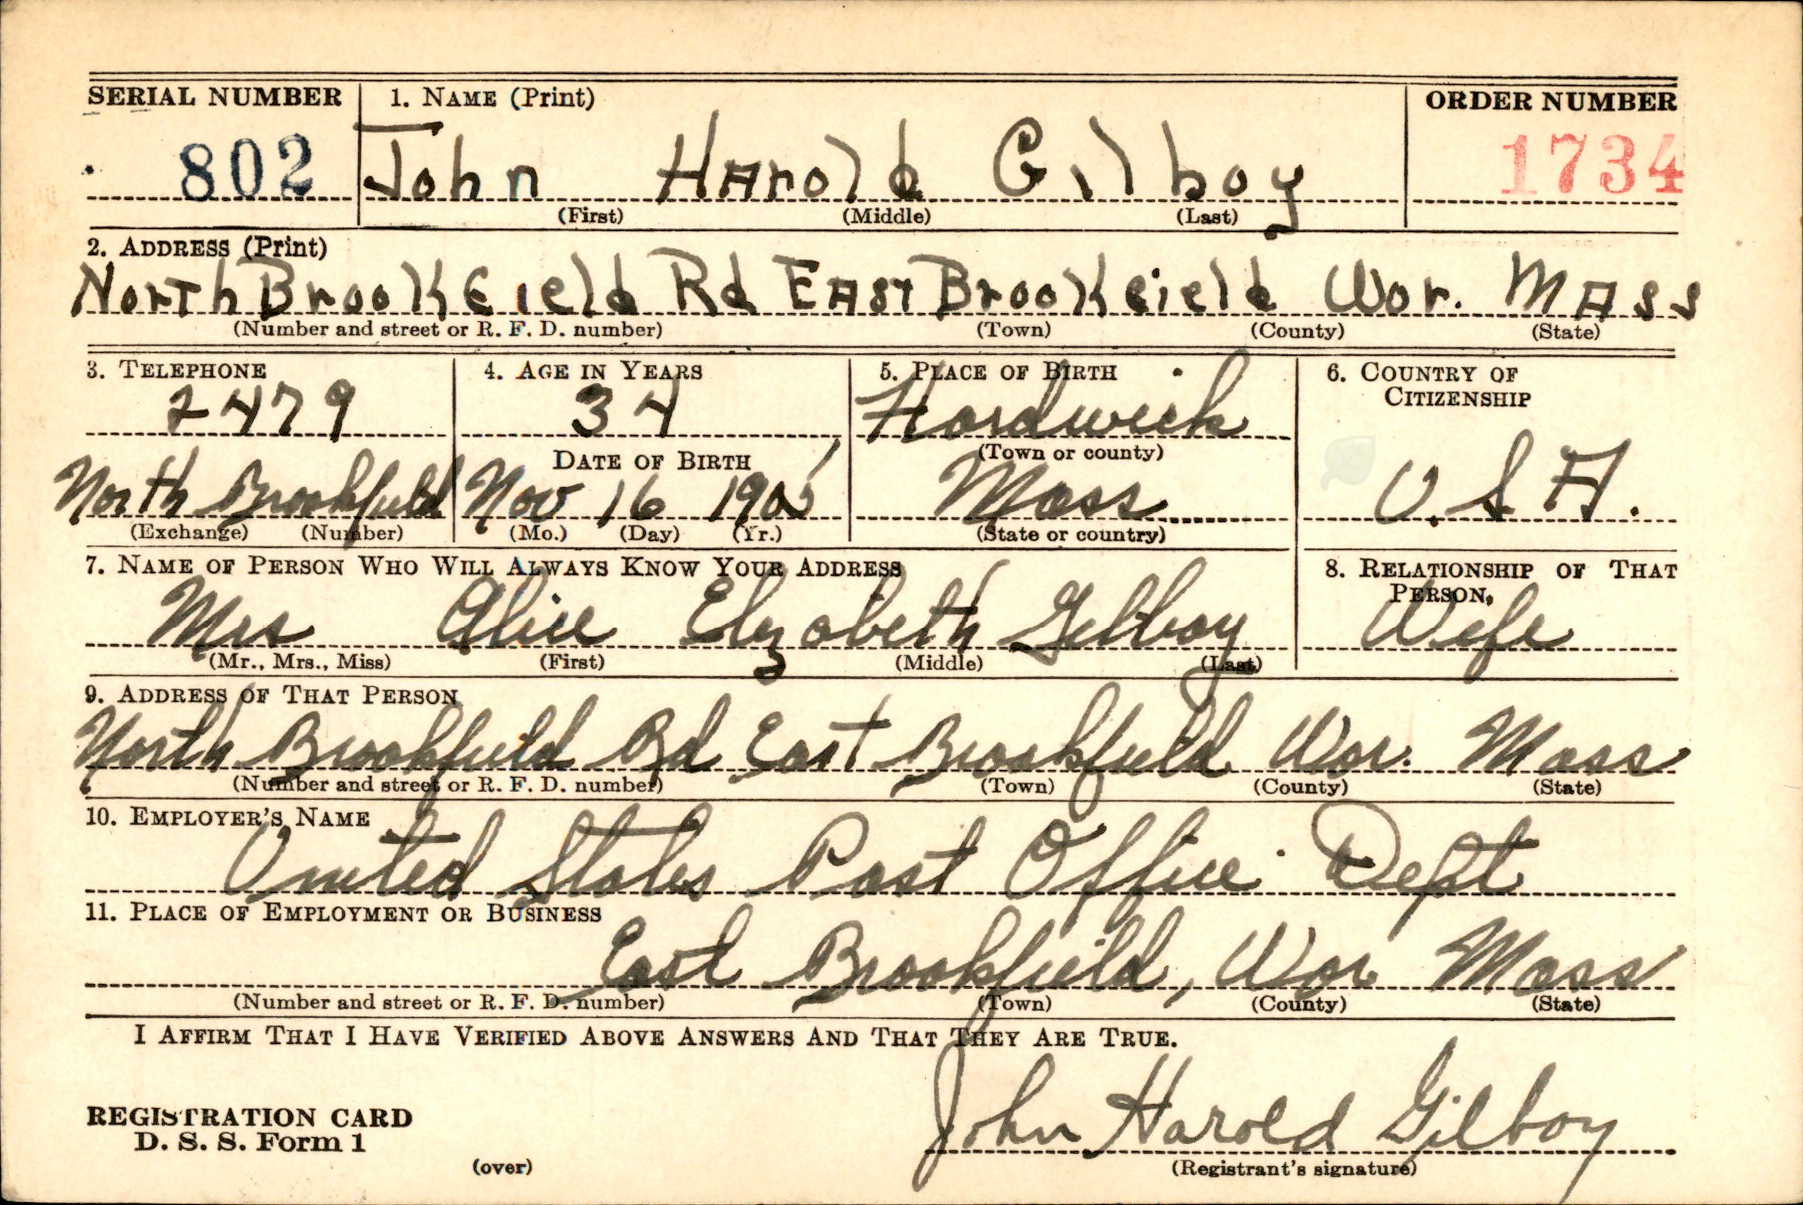 SERIAL NUMBER 1. NAME (Print) ORDER NUMBER
802 John Harold Gilboy 1734
(First) (Middle) (Last)
2. ADDRESS (Print)
North Brookfield Rd East Brookfield Wor. Mass
(Number and street or R. F. D. number) (Town) (County) (State)
3. TELEPHONE 4. AGE IN YEARS 5. PLACE OF BIRTH 6. COUNTRY OF CITIZENSHIP
2479 34 Hardwick
DATE OF BIRTH (Town or county)
North Brookfield Nov 16 1905 Mass U.S.A.
(Exchange) (Number) (Mo.) (Day) (Yr.) (State or country)
7. NAME OF PERSON WHO WILL ALWAYS KNOW YOUR ADDRESS 8. RELATIONSHIP OF THAT PERSON
Mrs Alice Elizabeth Gilboy Wife
(Mr., Mrs., Miss) (First) (Middle) (Last)
9. ADDRESS OF THAT PERSON
North Brookfield Rd East Brookfield Wor. Mass
(Number and street or R. F. D. number) (Town) (County) (State)
10. EMPLOYER'S NAME
United States Post Office Dept
11. PLACE OF EMPLOYMENT OR BUSINESS
East Brookfield, Wor Mass
(Number and street or R. F. D. number) (Town) (County) (State)
I AFFIRM THAT I HAVE VERIFIED ABOVE ANSWERS AND THAT THEY ARE TRUE.
John Harold Gilboy
REGISTRATION CARD
D. S. S. Form 1
(over) (Registrant's signature)